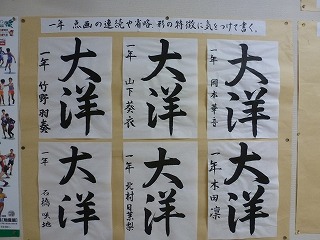 一年 点画の連続や省略、形の特徴に気をつけて書く。
大洋
一年 岡本
大洋
一年 山下葵衣
大洋
一年 竹野羽葵
大洋
一年 木田凛
大洋
一年 北村日菜梨
大洋
一年 石橋